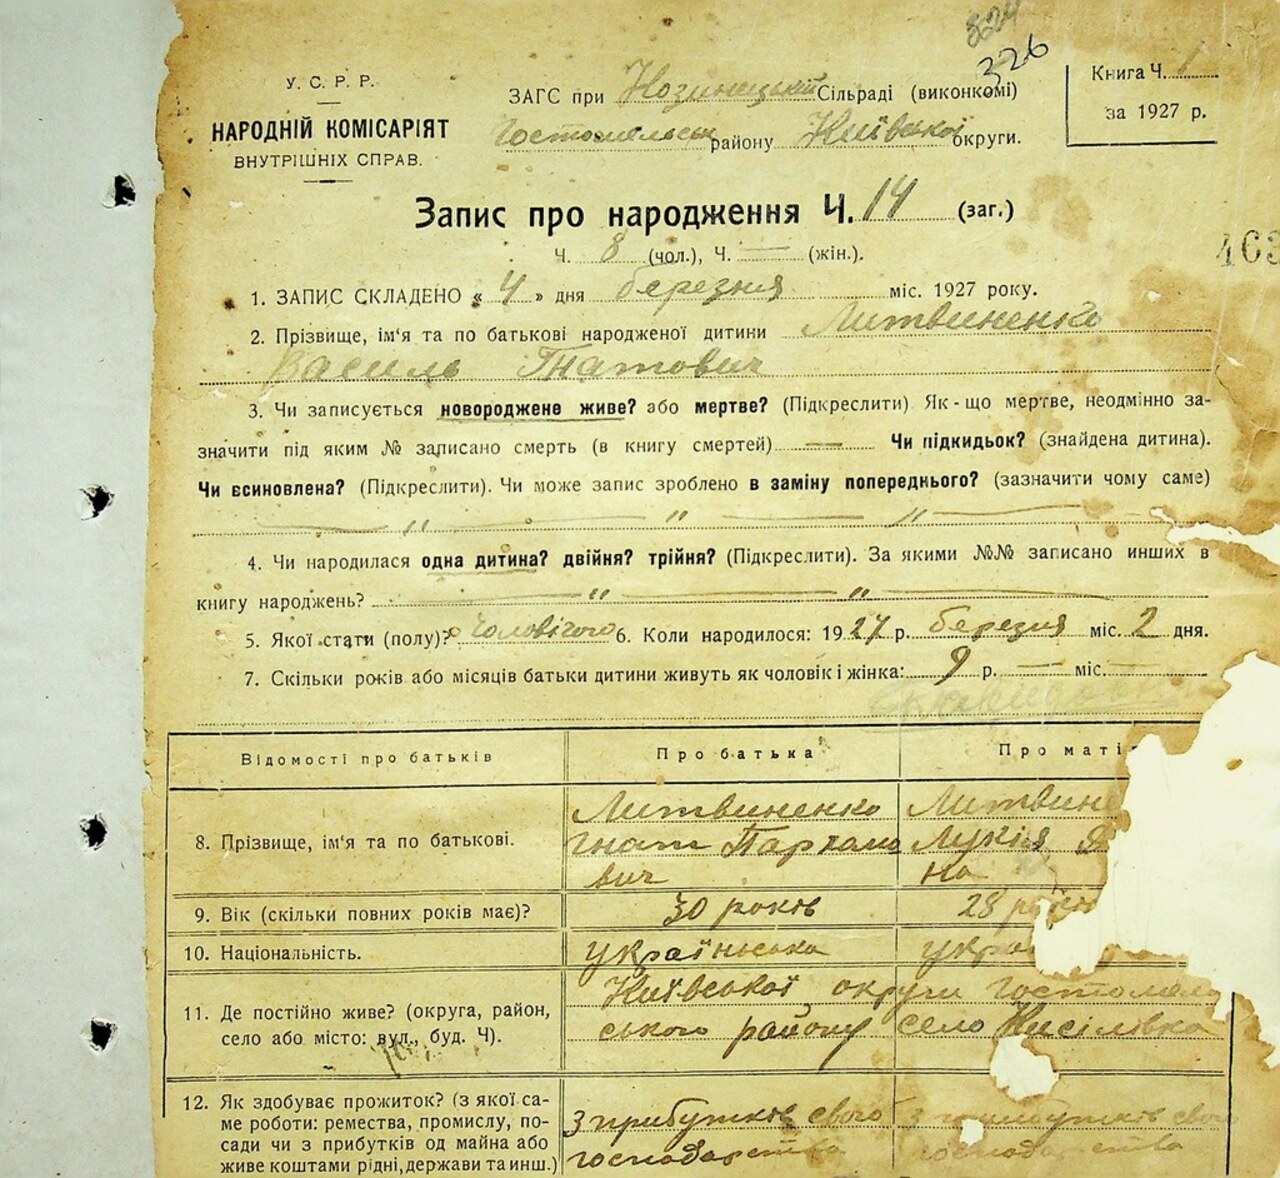 326
У. С. Р. Р.
НАРОДНІЙ КОМІСАРІЯТ
ВНУТРІШНІХ СПРАВ.
ЗАГС при Сільраді (виконкомі)
Гостомельськ району Київської округи.
Книга Ч. 1
за 1927 р.
Запис про народження Ч. 14 (заг.)
Ч. 8 (чол.), Ч. — (жін.).
463
1. ЗАПИС СКЛАДЕНО « 4 » дня березня міс. 1927 року.
2. Прізвище, ім'я та по батькові народженої дитини Литвиненко
Василь Гнатович
3. Чи записується новороджене живе? або мертве? (Підкреслити) Як-що мертве, неодмінно за-
значити під яким № записано смерть (в книгу смертей) — Чи підкидьок? (знайдена дитина).
Чи всиновлена? (Підкреслити). Чи може запис зроблено в заміну попереднього? (зазначити чому саме)
— " — " — " —
4. Чи народилася одна дитина? двійня? трійня? (Підкреслити). За якими №№ записано инших в
книгу народжень? — " — " —
5. Якої стати (полу)? чоловічого 6. Коли народилося: 1927 р. березня міс. 2 дня.
7. Скільки років або місяців батьки дитини живуть як чоловік і жінка: 9 р. — міс. —
Відомості про батьків Про батька Про маті
8. Прізвище, ім'я та по батькові.
Литвиненко Литвине
Гнат Пархомо Лукія
вич на
9. Вік (скільки повних років має)? 30 років 28
10. Національність. українська укра
11. Де постійно живе? (округа, район,
село або місто: вул., буд. Ч).
Київської округи Гостомель
ського району село
12. Як здобуває прожиток? (з якої са-
ме роботи: ремества, промислу, по-
сади чи з прибутків од майна або
живе коштами рідні, держави та инш.)
З прибутків свого З прибутків свого
господарства господарства